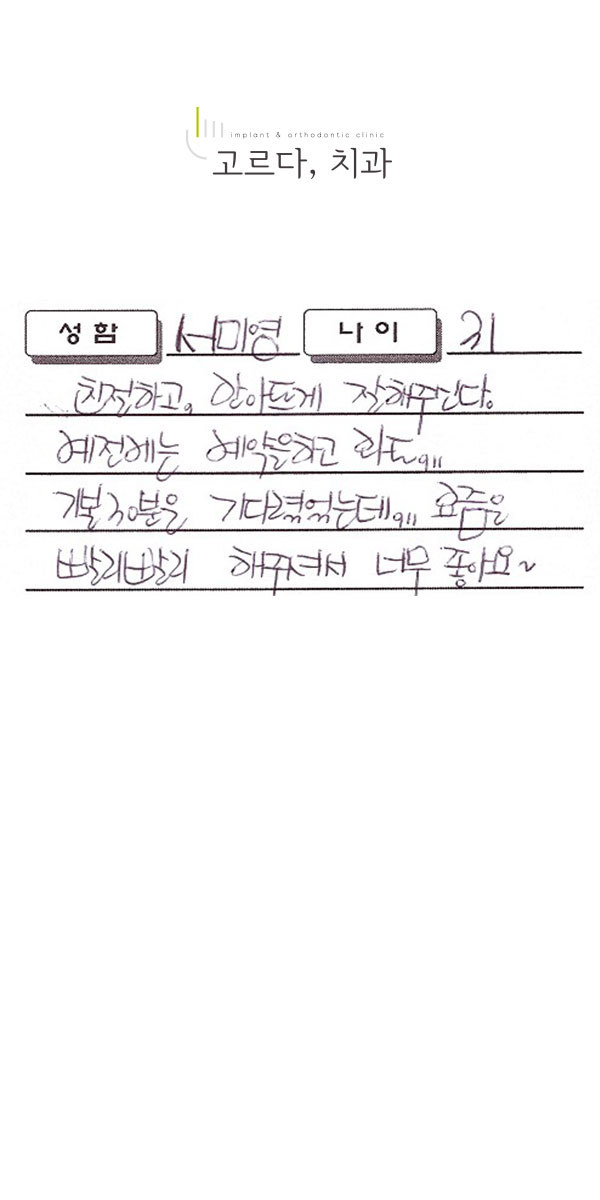 implant & orthodontic clinic
고르다, 치과
성 함 서미영 나 이 31
친절하고, 안아프게 잘해주신다.
예전에는 예약을하고 와도,,,
기본30분은 기다렸었는데,,, 요즘은
빨리빨리 해주셔서 너무 좋아요~